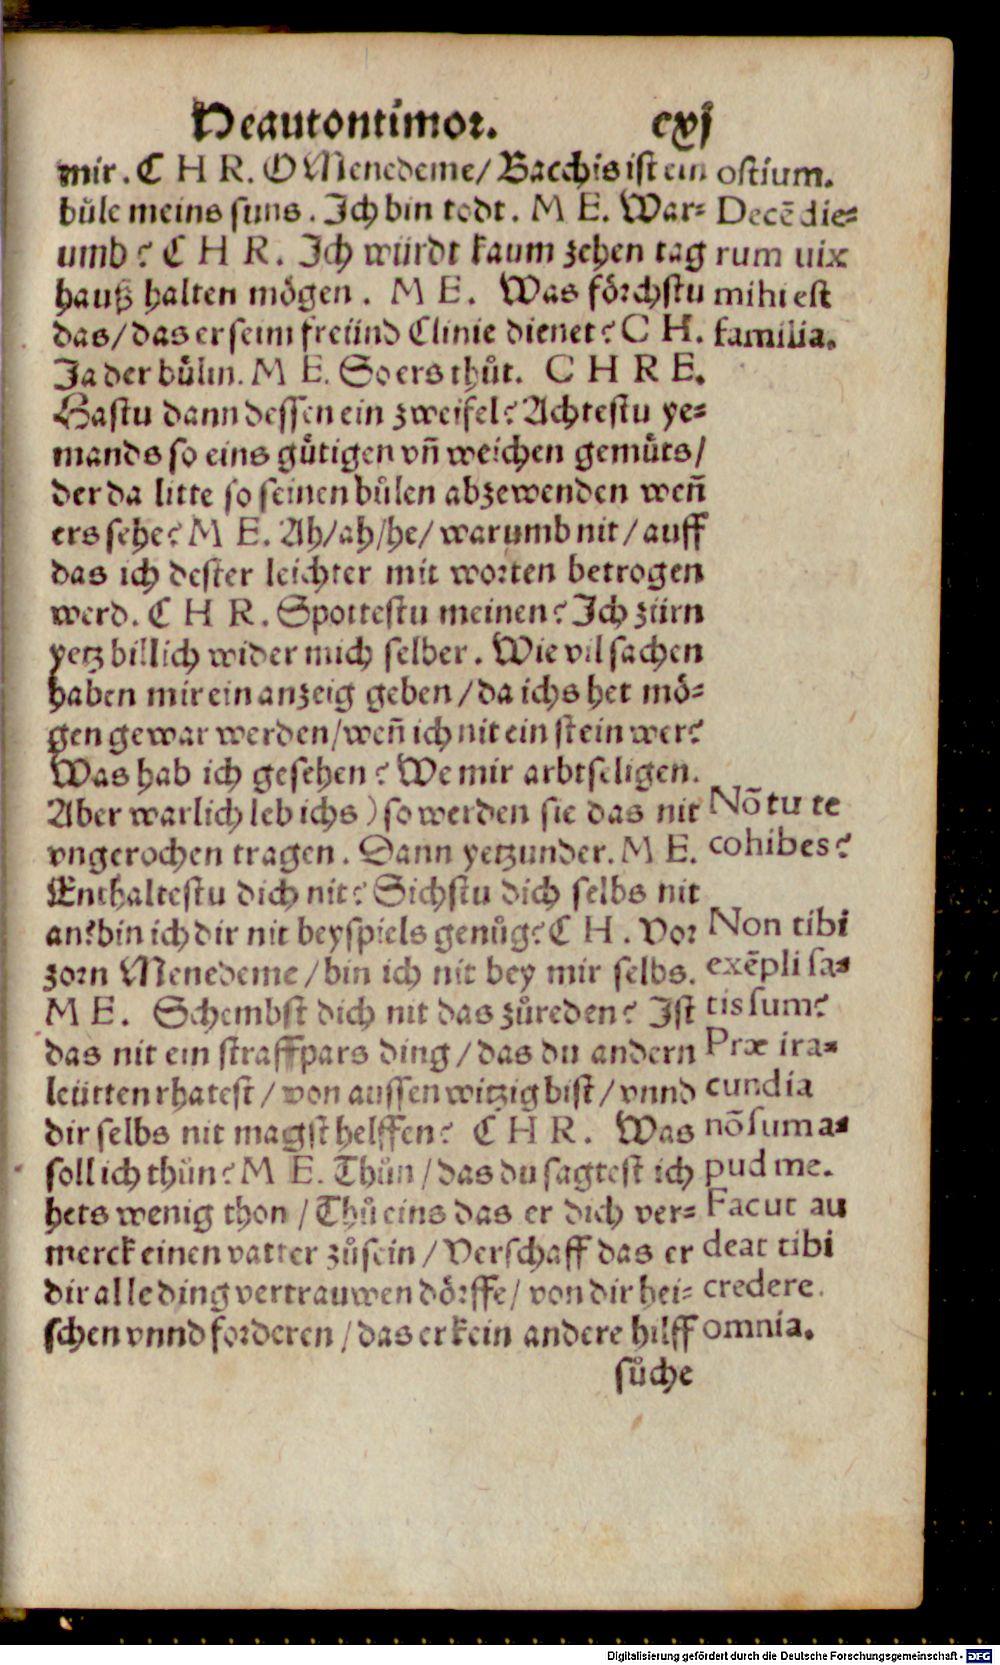 Heautontimor. cxj
mir. C H R. O Menedeme/ Bacchis ist ein
bůle meins suns. Ich bin todt. M E. War-
umb? C H R. Ich würdt kaum zehen tag
hauß halten mögen. M E. Was förchstu
das/ das er seim freünd Clinie dienet? C H.
Ja der bůlin. M E. So ers thůt. C H R E.
Hastu dann dessen ein zweifel? Achtestu ye-
mands so eins gůtigen vñ weichen gemůts/
der da litte so seinen bůlen abzewenden weñ
ers sehe? M E. Ah/ah/he/ warumb nit/ auff
das ich dester leichter mit worten betrogen
werd. C H R. Spottestu meinen? Ich zürn
yetz billich wider mich selber. Wie vil sachen
haben mir ein anzeig geben/ da ichs het mö-
gen gewar werden/ weñ ich nit ein stein wer?
Was hab ich gesehen? We mir arbtseligen.
Aber warlich leb ichs) so werden sie das nit
vngerochen tragen. Dann yetzunder. M E.
Enthaltestu dich nit? Sichstu dich selbs nit
an? bin ich dir nit beyspiels genůg? C H. Vor
zorn Menedeme/ bin ich nit bey mir selbs.
M E. Schembst dich nit das zůreden? Ist
das nit ein straffpars ding/ das du andern
leütten rhatest/ von aussen witzig bist/ vnnd
dir selbs nit magst helffen? C H R. Was
soll ich thůn? M E. Thůn/ das du sagtest ich
hets wenig thon/ Thů eins das er dich ver-
merck einen vatter zůsein/ Verschaff das er
dir alle ding vertrauwen dörffe/ von dir hei-
schen vnnd forderen/ das er kein andere hilff
sůche
ostium.
Decē die-
rum uix
mihi est
familia.
Nō tu te
cohibes?
Non tibi
exēpli sa-
tis sum?
Præ ira-
cundia
nō sum a-
pud me.
Fac ut au
deat tibi
credere
omnia.
Digitalisierung gefördert durch die Deutsche Forschungsgemeinschaft - DFG